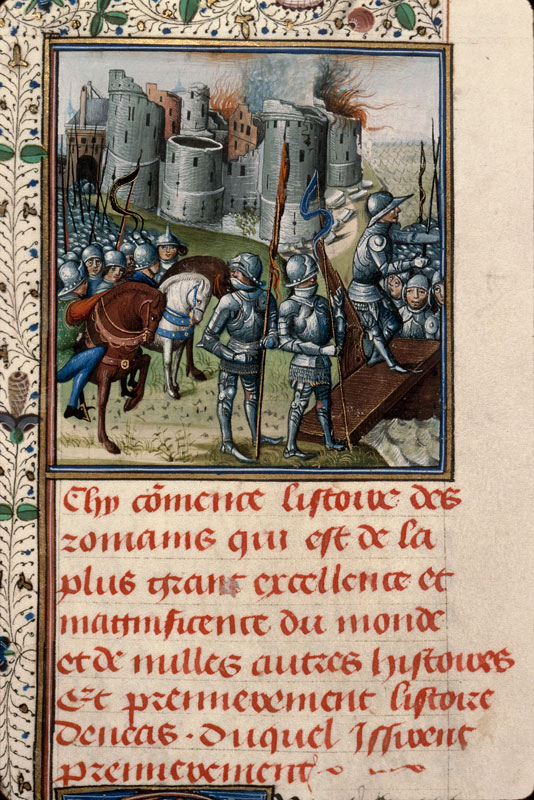 Chy cōmence listoire des
romains qui est de la
plus grant excellence et
magnificence du monde
et de nulles autres histoires
Et premierement listoire
deneas . duquel Issirent
premierement